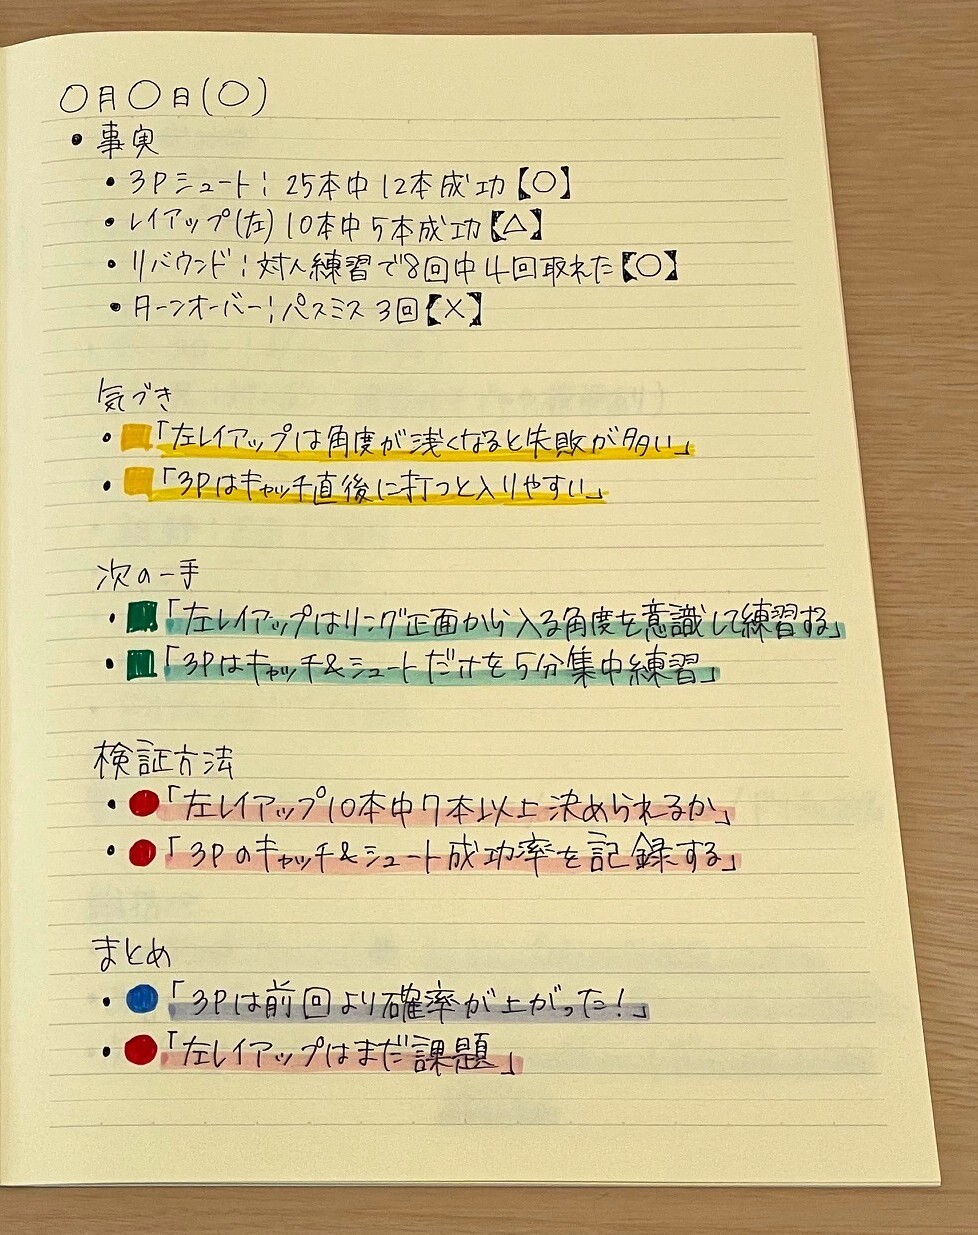 〇月〇日(〇)
• 事実
• 3Pシュート: 25本中12本成功【〇】
• レイアップ(左)10本中5本成功【△】
• リバウンド: 対人練習で8回中4回取れた【〇】
• ターンオーバー: パスミス3回【×】
気づき
• 「左レイアップは角度が浅くなると失敗が多い」
• 「3Pはキャッチ直後に打つと入りやすい」
次の一手
• 「左レイアップはリング正面から入る角度を意識して練習する」
• 「3Pはキャッチ&シュートだけを5分集中練習」
検証方法
• 「左レイアップ10本中7本以上決められるか」
• 「3Pのキャッチ&シュート成功率を記録する」
まとめ
• 「3Pは前回より確率が上がった!」
• 「左レイアップはまだ課題」